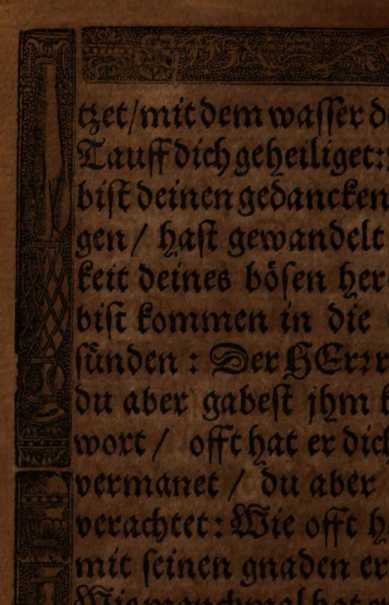 tzet/mit dem wasser
Tauff dich geheiliget:
bist deinen gedancken
gen / hast gewandelt
keit deines bösen
bist kommen in die
sünden : Der HErr
du aber gabest jhm
wort / offt hat er dich
vermanet / du aber
verachtet: Wie offt
mit seinen gnaden